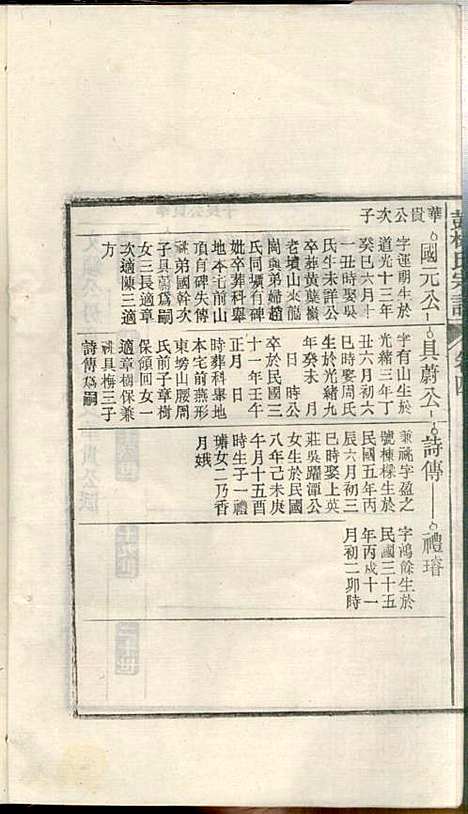 彭橋氏宗譜
卷四
華貴公次子
國元公
字運朝生於
道光十三年
癸巳六月十
一丑時娶吳
氏生未詳公
卒葬黃葉嶺
老墳山來龍
崗與弟婦趙
氏同壙有碑
妣卒葬科舉
地本宅前山
頂自碑失傳
祧弟國幹次
子具蔚爲嗣
女三長適章
次適陳三適
方
具蔚公
字有山生於
光緒三年丁
丑六月初六
巳時娶周氏
生於光緒九
年癸未 月
日 時公
卒於民國三
十一年壬午
正月 日
時葬科舉地
本宅前燕形
東塝山腰周
氏前子章樹
保領回女一
適章樹保兼
祧具梅三子
詩傳爲嗣
詩傳
兼祧字盈之
號棟樑生於
民國五年丙
辰六月初三
巳時娶上英
莊吳躍潭公
女生於民國
八年己未庚
午月十五酉
時生子一禮
璿女二乃香
月娥
禮璿
字鴻餘生於
民國三十五
年丙戌十一
月初二卯時